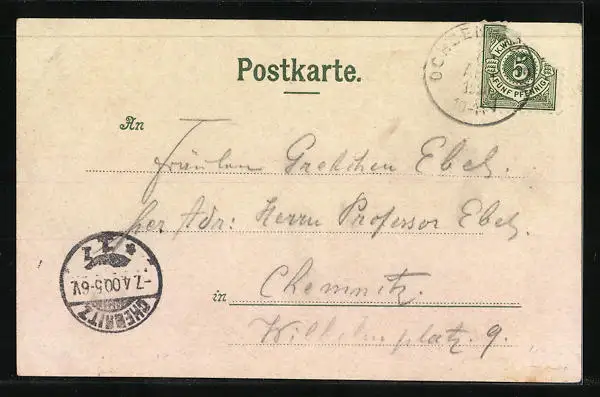 Postkarte.
K. WÜ
5
FÜNF PFENNIG
OCHSEN
An
Fräulein Gretchen Ebel.
per Adr: Herrn Professor Ebel.
in Chemnitz.
Wilhelmplatz. 9.
-7.4.00.5-6V.
CHEMNITZ